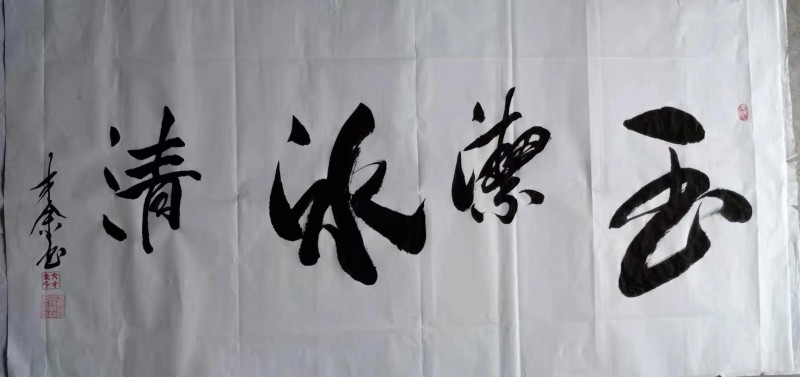 玉潔冰清